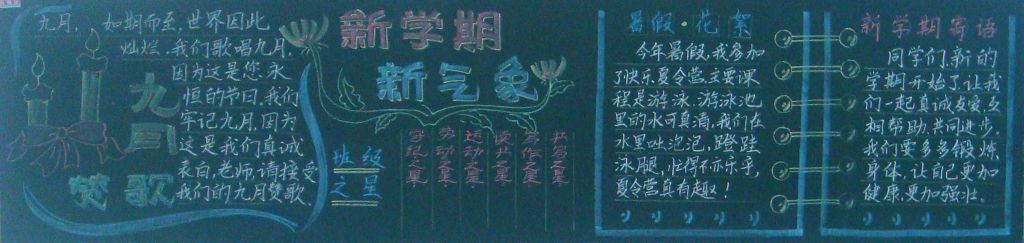 九月，如期而至，世界因此
灿烂。我们歌唱九月，
因为这是您永
恒的节日。我们
牢记九月，因为
这是我们真诚
表白，老师，请接受
我们的九月赞歌。
九月
赞歌
新学期
新气象
班级
之星
守纪之星
劳动之星
运动之星
读书之星
写作之星
书写之星
暑假·花絮
今年暑假，我参加
了快乐夏令营主要课
程是游泳。游泳池
里的水可真清，我们在
水里吐泡泡，蹬蹬
泳腿，忙得不亦乐乎，
夏令营真有趣！
新学期寄语
同学们，新的
学期开始了，让我
们一起真诚友爱，互
相帮助，共同进步。
我们要多多锻炼
身体，让自己更加
健康，更加强壮。